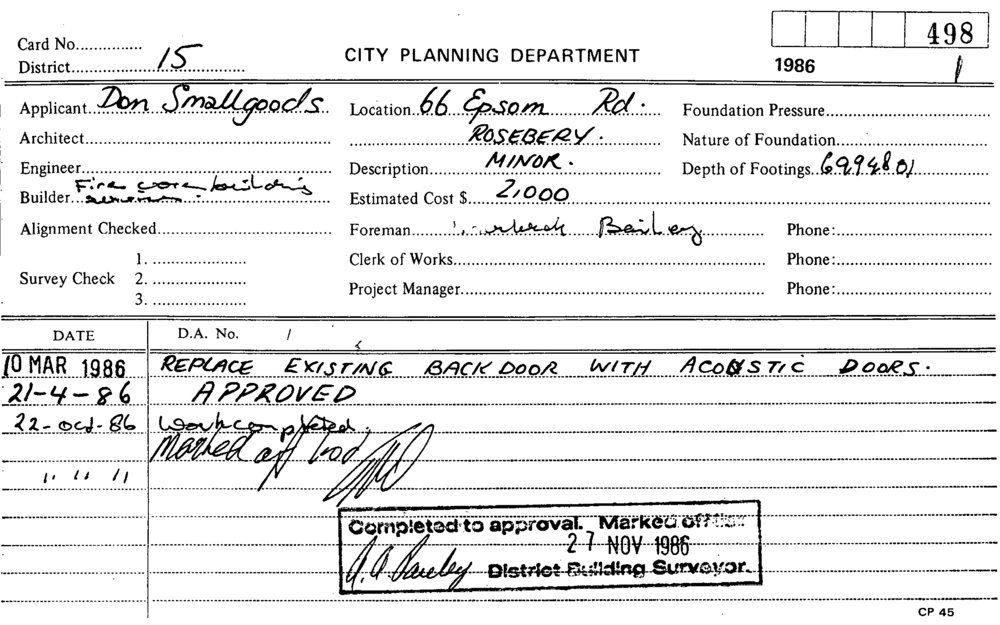 Card No............... CITY PLANNING DEPARTMENT 498
District 15 1986 1
Applicant Don Smallgoods Location 66 Epsom Rd. Foundation Pressure
Architect ROSEBERY. Nature of Foundation
Engineer Description MINOR. Depth of Footings 6994801
Builder Fire core building services. Estimated Cost $ 2,000
Alignment Checked Foreman Bailey Phone:
Survey Check 1. Clerk of Works Phone:
2.
3. Project Manager Phone:
DATE D.A. No. /
10 MAR 1986 REPLACE EXISTING BACK DOOR WITH ACOUSTIC DOORS.
21-4-86 APPROVED
22-Oct-86 Work completed.
Marked off
" " "
Completed to approval. Marked off
27 NOV 1986
District Building Surveyor.
CP 45